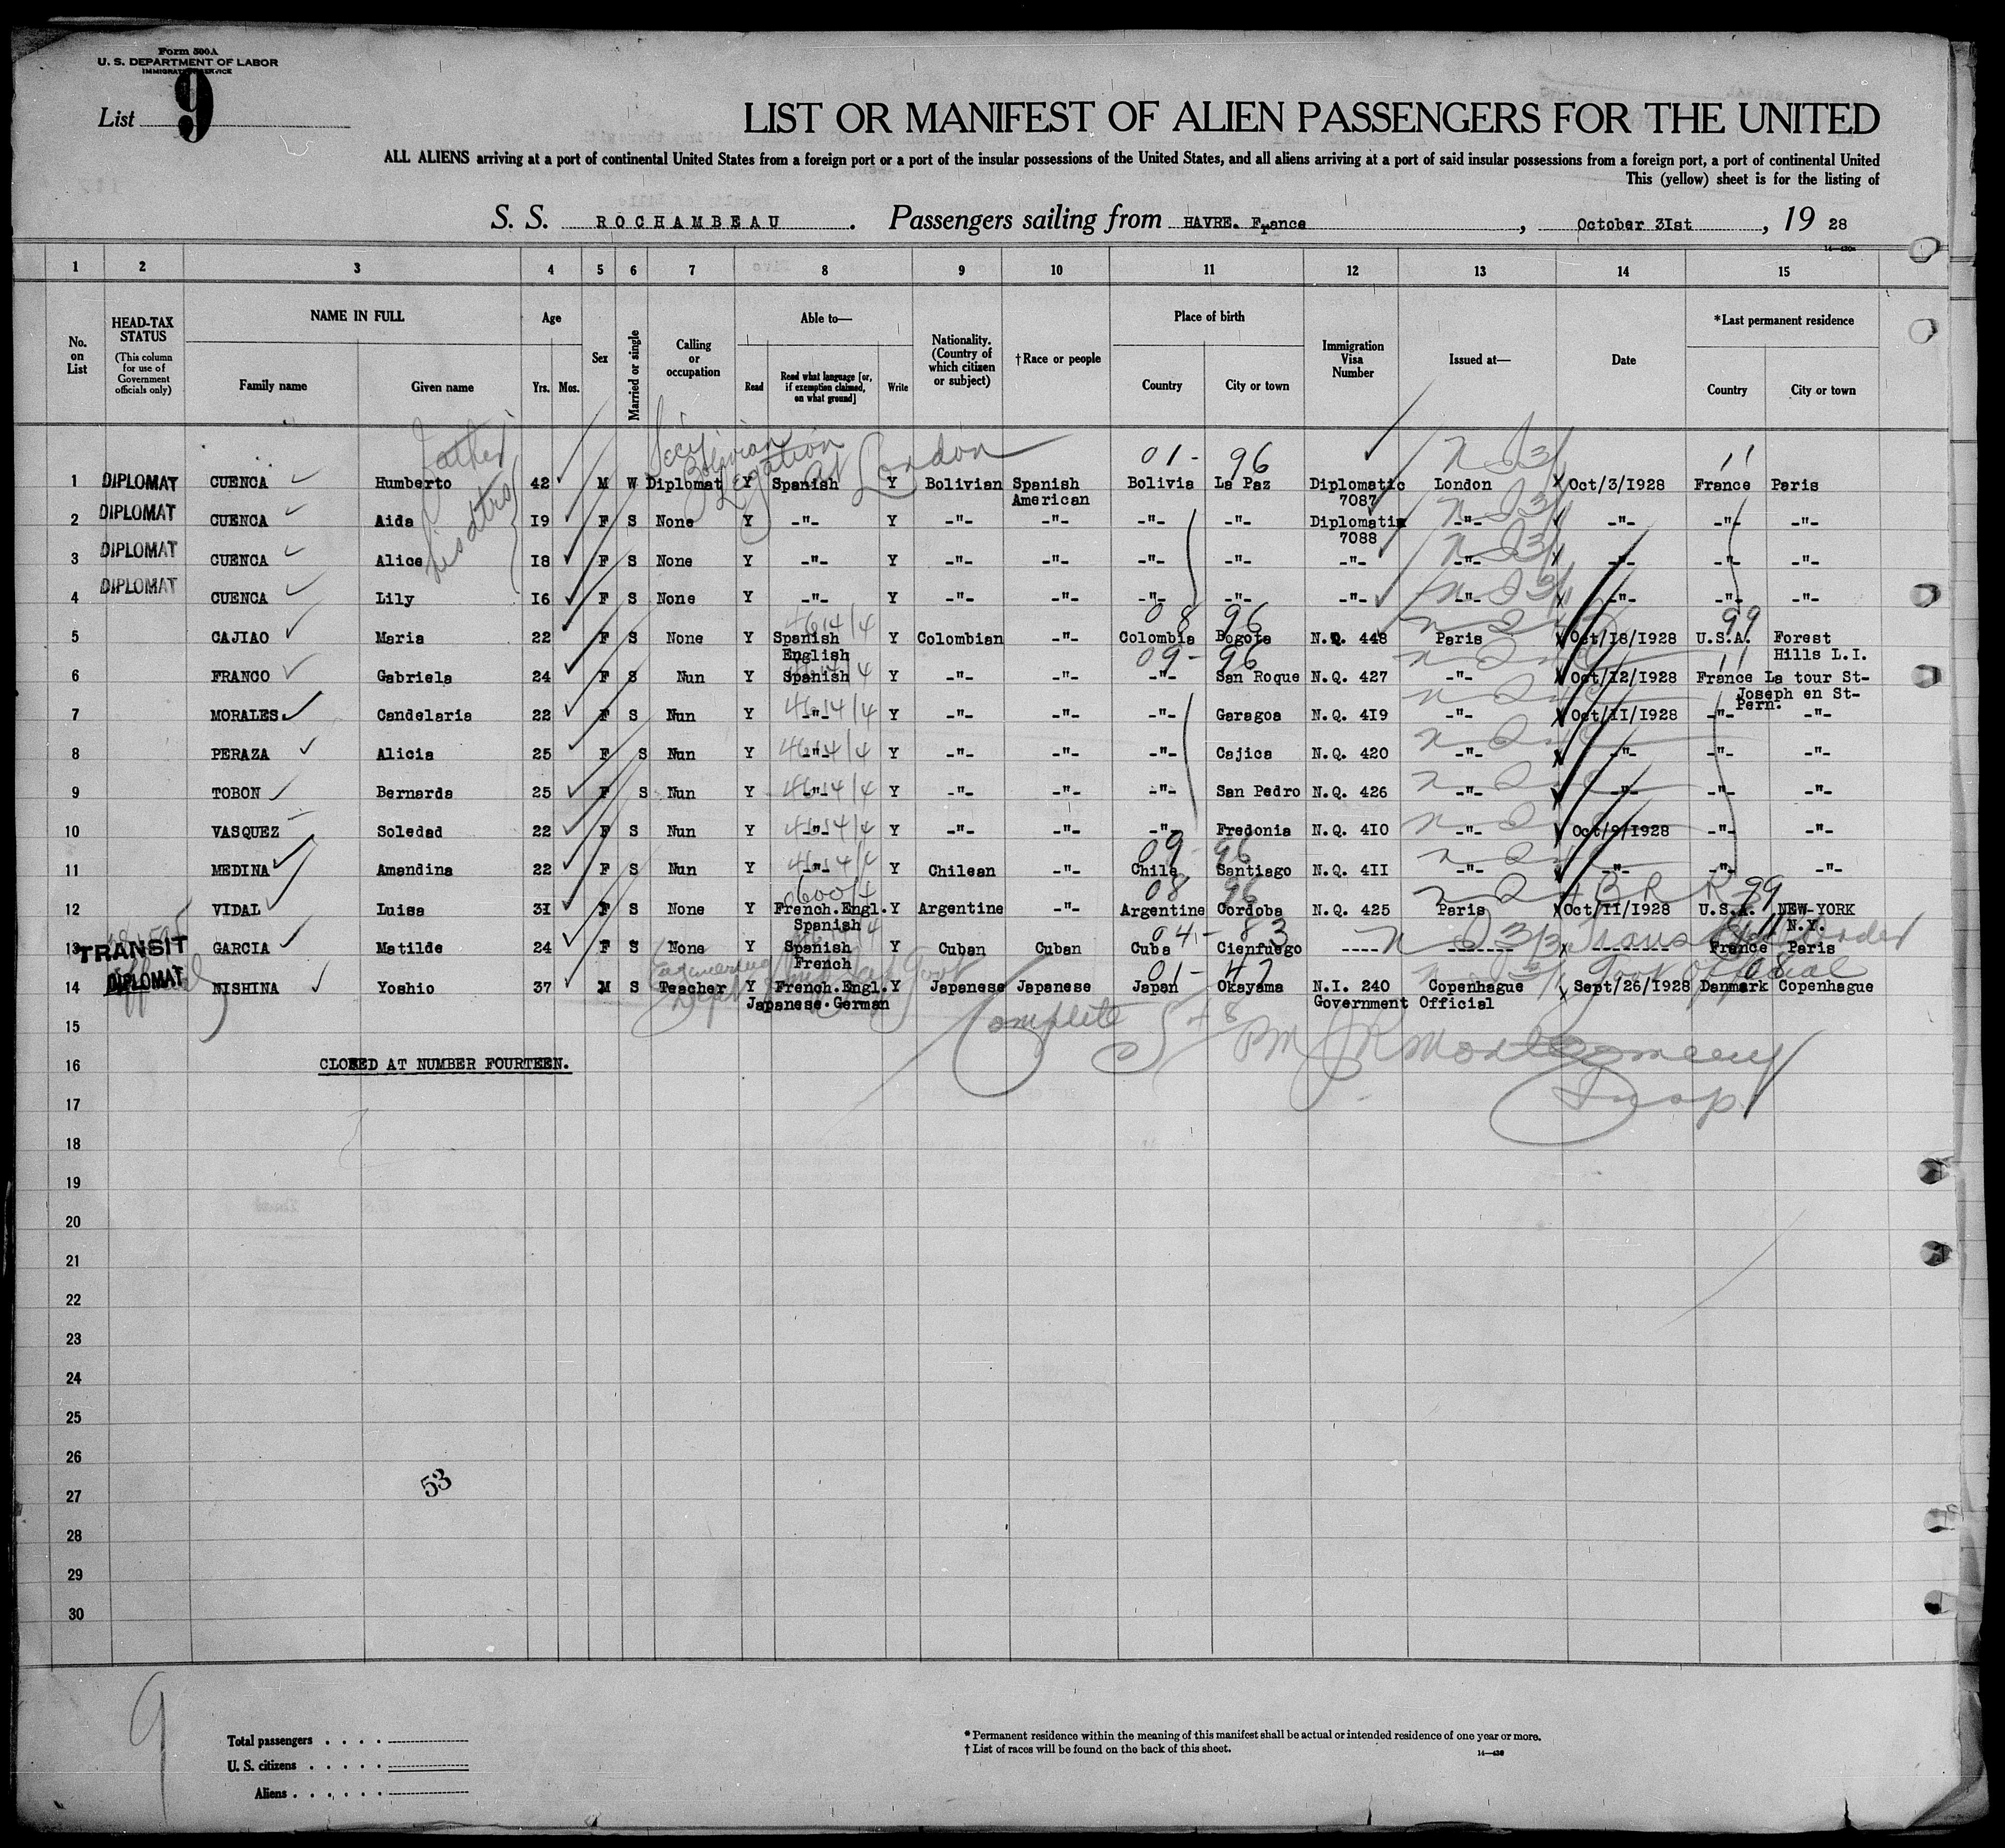 Form 500A
U. S. DEPARTMENT OF LABOR
IMMIGRATION SERVICE
List 9
LIST OR MANIFEST OF ALIEN PASSENGERS FOR THE UNITED
ALL ALIENS arriving at a port of continental United States from a foreign port or a port of the insular possessions of the United States, and all aliens arriving at a port of said insular possessions from a foreign port, a port of continental United
This (yellow) sheet is for the listing of
S. S. ROCHAMBEAU . Passengers sailing from HAVRE. France , October 3Ist , 19 28
1 2 3 4 5 6 7 8 9 10 11 12 13 14 15
No. on List
HEAD-TAX STATUS (This column for use of Government officials only)
NAME IN FULL
Family name Given name
Age
Yrs. Mos.
Sex
Married or single
Calling or occupation
Able to—
Read Read what language [or, if exemption claimed, on what ground] Write
Nationality. (Country of which citizen or subject)
† Race or people
Place of birth
Country City or town
Immigration Visa Number
Issued at—
Date
*Last permanent residence
Country City or town
father
his dtrs
Secy Bolivian Legation at London
01- 96 11
1 DIPLOMAT CUENCA Humberto 42 M W Diplomat Y Spanish Y Bolivian Spanish American Bolivia La Paz Diplomatic 7087 London Oct/3/1928 France Paris
2 DIPLOMAT CUENCA Aida I9 F S None Y -"- Y -"- -"- -"- -"- Diplomatic 7088 -"- -"- -"- -"-
3 DIPLOMAT CUENCA Alice I8 F S None Y -"- Y -"- -"- -"- -"- -"- -"- -"- -"- -"-
4 DIPLOMAT CUENCA Lily I6 F S None Y -"- Y -"- -"- -"- -"- -"- -"- -"- -"- -"-
08 96 99
5 CAJIAO Maria 22 F S None Y Spanish English Y Colombian -"- Colombia Bogota N.Q. 448 Paris Oct/I8/I928 U.S.A. Forest Hills L.I.
09- 96 11
6 FRANCO Gabriela 24 F S Nun Y Spanish Y -"- -"- -"- San Roque N.Q. 427 -"- Oct/I2/I928 France La tour St-Joseph en St-Pern.
7 MORALES Candelaria 22 F S Nun Y -"- Y -"- -"- -"- Garagoa N.Q. 4I9 -"- Oct/II/I928 -"- -"-
8 PERAZA Alicia 25 F S Nun Y -"- Y -"- -"- -"- Cajica N.Q. 420 -"- -"- -"- -"-
9 TOBON Bernarda 25 F S Nun Y -"- Y -"- -"- -"- San Pedro N.Q. 426 -"- -"- -"- -"-
10 VASQUEZ Soledad 22 F S Nun Y -"- Y -"- -"- -"- Fredonia N.Q. 4I0 -"- Oct/9/I928 -"- -"-
09 96
11 MEDINA Amandina 22 F S Nun Y -"- Y Chilean -"- Chile Santiago N.Q. 4II -"- -"- -"- -"-
08 96 99
12 VIDAL Luisa 3I F S None Y French.Engl. Spanish Y Argentine -"- Argentine Cordoba N.Q. 425 Paris Oct/II/I928 U.S.A. NEW-YORK N.Y.
04- 83 11
13 TRANSIT GARCIA Matilde 24 F S None Y Spanish French Y Cuban Cuban Cuba Cienfuego ---- ------- -------- France Paris
01- 47 08
14 DIPLOMAT NISHINA Yoshio 37 M S Teacher Y French.Engl. Japanese.German Y Japanese Japanese Japan Okayama N.I. 240 Government Official Copenhague Sept/26/I928 Danmark Copenhague
Govt Official
15
Complete 5+8 PM JR Montgomery
Insp
16 CLOSED AT NUMBER FOURTEEN.
17
18
19
20
21
22
23
24
25
26
53
27
28
29
30
9
Total passengers
U. S. citizens
Aliens
* Permanent residence within the meaning of this manifest shall be actual or intended residence of one year or more.
† List of races will be found on the back of this sheet.
14—430